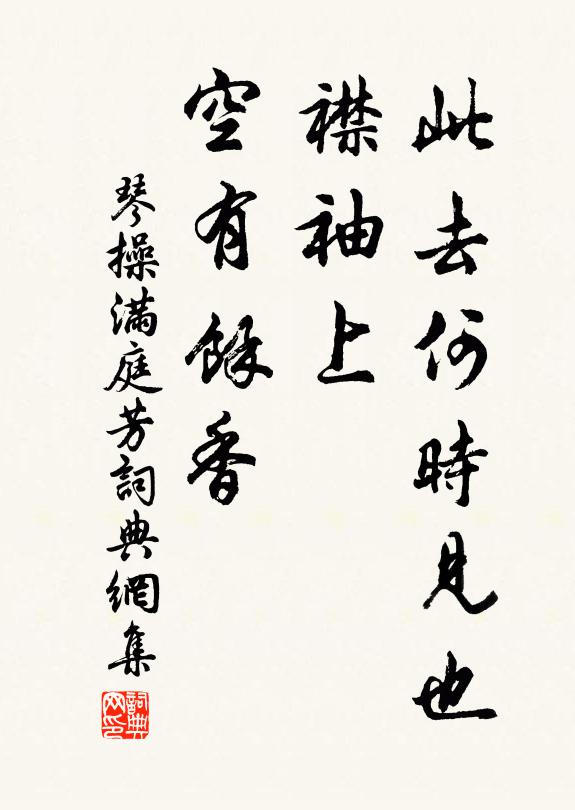 此去何時見也
襟袖上
空有餘香
琴操滿庭芳詞典網集
詞典網印